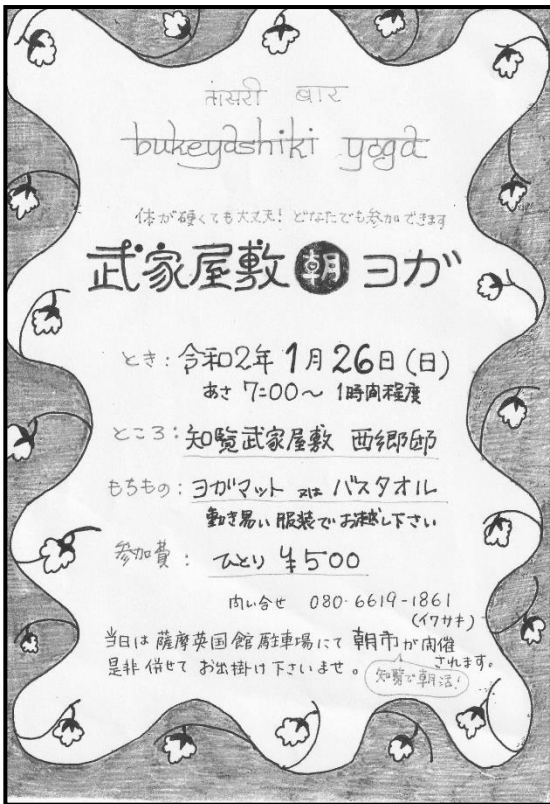 तीसरी बार
bukeyashiki yoga
体が硬くても大丈夫! どなたでも参加できます
武家屋敷 朝 ヨガ
とき: 令和2年 1月26日(日)
あさ 7:00〜 1時間程度
ところ: 知覧武家屋敷 西郷邸
もちもの: ヨガマット 又は バスタオル
動き易い服装でお越し下さい
参加費: ひとり ¥500
問い合せ 080-6619-1861
(イワサキ)
当日は薩摩英国館駐車場にて 朝市が開催されます。
是非併せてお出掛け下さいませ。
知覧で朝活!